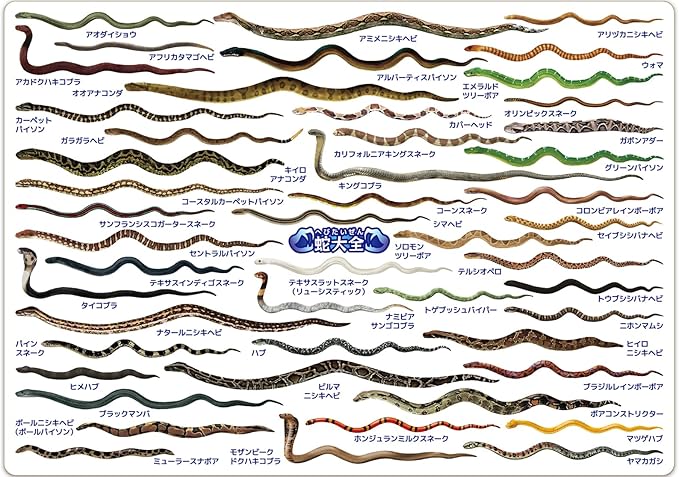 アオダイショウ
アミメニシキヘビ
アリヅカニシキヘビ
アフリカタマゴヘビ
アカドクハキコブラ
アルバーティスパイソン
ウォマ
オオアナコンダ
エメラルド
ツリーボア
オリンピックスネーク
カーペット
パイソン
ガラガラヘビ
カパーヘッド
カリフォルニアキングスネーク
ガボンアダー
キイロ
アナコンダ
キングコブラ
グリーンパイソン
コースタルカーペットパイソン
コーンスネーク
コロンビアレインボーボア
サンフランシスコガータースネーク
へびたいぜん
蛇大全
シマヘビ
セイブシシバナヘビ
セントラルパイソン
ソロモン
ツリーボア
テルシオペロ
タイコブラ
テキサスインディゴスネーク
テキサスラットスネーク
(リューシスティック)
トウブシシバナヘビ
ナミビア
サンゴコブラ
トゲブッシュバイパー
ニホンマムシ
ナタールニシキヘビ
パイン
スネーク
ハブ
ヒイロ
ニシキヘビ
ヒメハブ
ビルマ
ニシキヘビ
ブラジルレインボーボア
ブラックマンバ
ボアコンストリクター
ボールニシキヘビ
(ボールパイソン)
ホンジュランミルクスネーク
マツゲハブ
ミューラースナボア
モザンビーク
ドクハキコブラ
ヤマカガシ